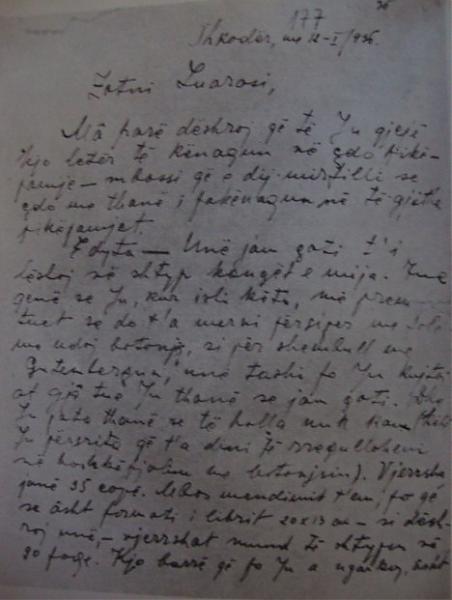 36
177
Shkodër, me 12-I/936.
Zotni Luarasi,
Më parë dëshroj që të Ju gjejë
kjo letër të kënaqun në çdo pikë-
pamje – mbassi që e dij mirfilli se
çdo me thanë i pakënaqun në të gjitha
pikëpamjet.
E dyta — Unë jam gati t'i
lëshoj në shtyp kangët e mija. Tue
qenë se Ju, kur ishi këtu, më prem
tuet se do t'a merni përsiper me
me ndoj botonjs, si për shembull me
"Gutenbergun", unë tashi po Ju kujtoj
at gja tue Ju thanë se jam gati. Dhe
Ju pata thanë se të holla nuk kam (këtë
Ju përsrita që t'a dini të rregulloheni
në bashkëfjalim me botonjsin). Vjerrsha
janë 35 copë. Mbas mendimit t'em, po që
se âsht formati i librit 20x13 cm – si dësh-
roj unë, – vjerrshat mund të shtypen në
90 faqe. Kjo barrë që po Ju a ngarkoj, âsht